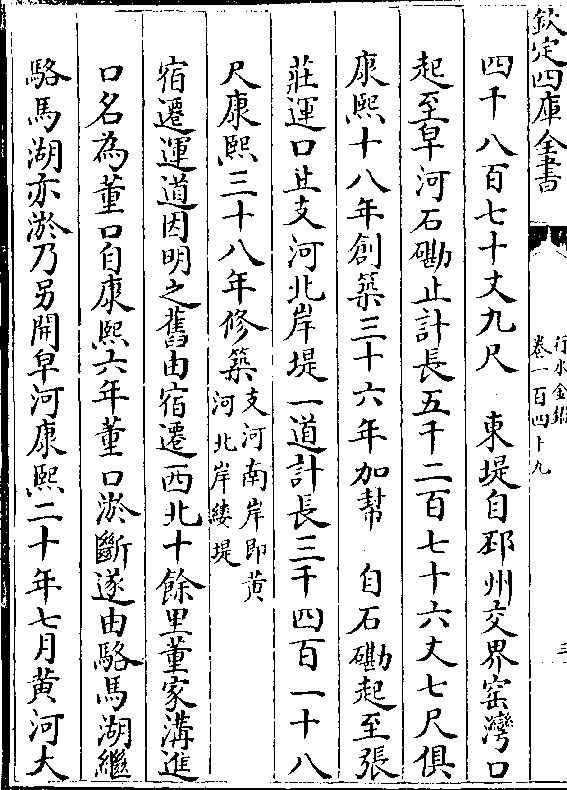 欽定四庫全書
行水金鑑
卷一百四十九
四千八百七十丈九尺　東堤自邳州交界窑灣口
起至皁河石磡止計長五千二百七十六丈七尺俱
康熙十八年創築三十六年加幫　自石磡起至張
莊運口止支河北岸堤一道計長三千四百一十八
尺康熙三十八年修築支河南岸即黄河北岸縷堤
宿遷運道因明之舊由宿遷西北十餘里董家溝進
口名為董口自康熙六年董口淤斷遂由駱馬湖繼
駱馬湖亦淤乃另開皁河康熙二十年七月黄河大